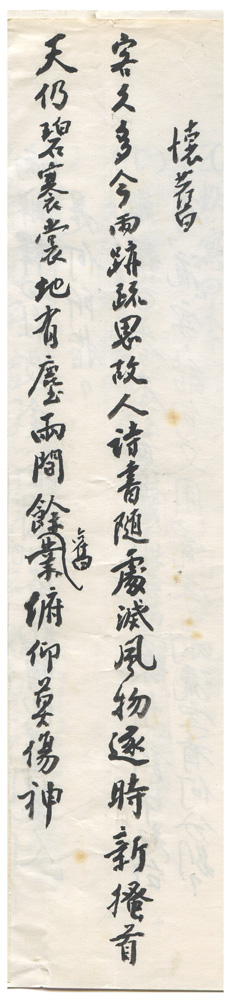 懷舊
客久多今雨跡疏思故人詩書隨處減風物逐時新搔首
天仍碧褰裳地有塵兩間餘舊業俯仰莫傷神